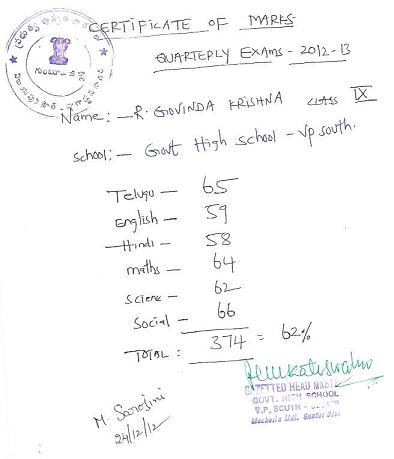 CERTIFICATE OF MARKS
QUARTERLY EXAMS - 2012-13
Name: - R. GOVINDA KRISHNA CLASS IX
school: - Govt High school - VP south.
Telugu - 65
English - 59
Hindi - 58
maths - 64
Science - 62
Social - 66
TOTAL : 374 = 62%
GAZETTED HEAD MASTER
GOVT. HIGH SCHOOL
V.P. SOUTH -
Macherla Mdl. Guntur Dist.
M. Sarojini
24/12/12